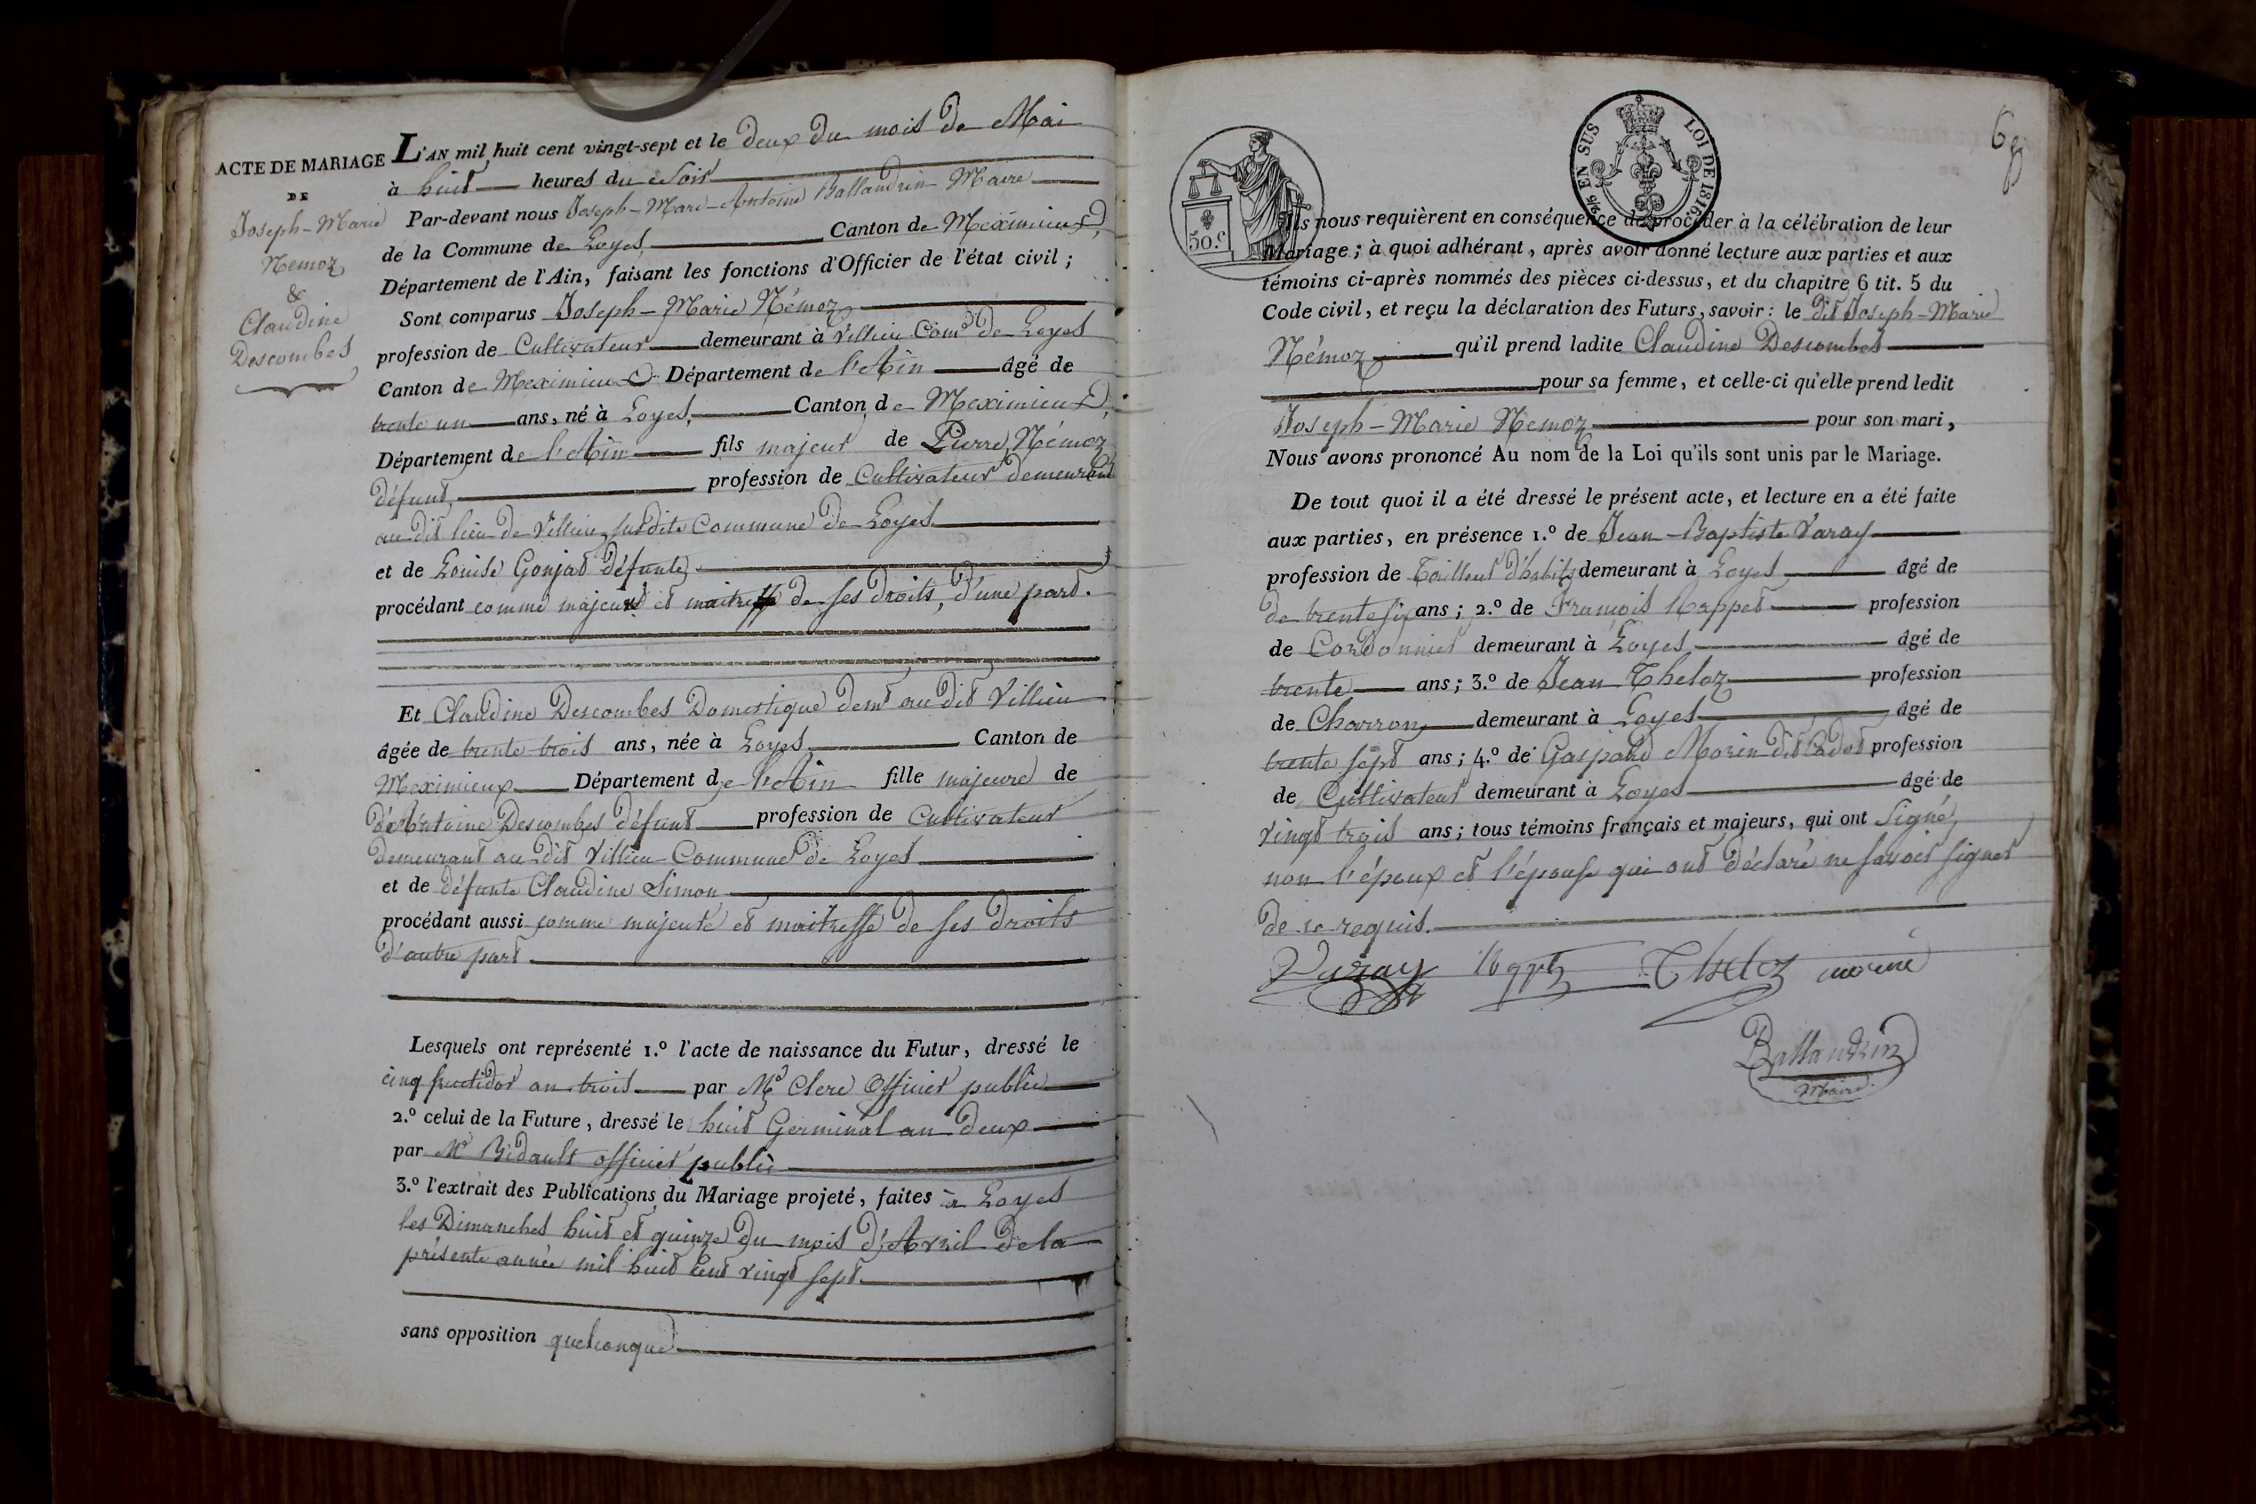 ACTE DE MARIAGE
DE
Joseph-Marie
Nemoz
&
Claudine
Descombes
L'AN mil huit cent vingt-sept et le deux du mois de Mai
à huit heures du Soir
Par-devant nous Joseph-Marc-Antoine Ballandrin Maire
de la Commune de Loyes, Canton de Meximieux,
Département de l'Ain, faisant les fonctions d'Officier de l'état civil ;
Sont comparus Joseph-Marie Némoz
profession de Cultivateur demeurant à Villieu Com.ne de Loyes
Canton de Meximieux Département de l'Ain âgé de
trente un ans, né à Loyes, Canton de Meximieux,
Département de l'Ain fils majeur de Pierre Némoz
défunt, profession de Cultivateur demeurant
au dit lieu de Villieu, susdite Commune de Loyes
et de Louise Gonjat défunte
procédant comme majeur et maitre de ses droits, d'une part.
Et Claudine Descombes Domestique demt au dit Villieu
âgée de trente trois ans, née à Loyes Canton de
Meximieux Département de l'Ain fille majeure de
d'Antoine Descombes défunt profession de Cultivateur
demeurant au dit Villieu Commune de Loyes
et de défunte Claudine Simon
procédant aussi comme majeure et maitresse de ses droits
d'autre part
Lesquels ont représenté 1.º l'acte de naissance du Futur, dressé le
cinq fructidor an trois par Mr Clerc Officier public
2.º celui de la Future, dressé le huit Germinal an deux
par Mr Bidault officier public
3.º l'extrait des Publications du Mariage projeté, faites à Loyes
les Dimanches huit et quinze du mois d'Avril de la
présente année mil huit cent vingt sept.
sans opposition quelconque
50.c
5/2 EN SUS LOI DE 1816.
68
Ils nous requièrent en conséquence de procéder à la célébration de leur
Mariage ; à quoi adhérant, après avoir donné lecture aux parties et aux
témoins ci-après nommés des pièces ci-dessus, et du chapitre 6 tit. 5 du
Code civil, et reçu la déclaration des Futurs, savoir : le dit Joseph-Marie
Némoz qu'il prend ladite Claudine Descombes
pour sa femme, et celle-ci qu'elle prend ledit
Joseph-Marie Némoz pour son mari,
Nous avons prononcé Au nom de la Loi qu'ils sont unis par le Mariage.
De tout quoi il a été dressé le présent acte, et lecture en a été faite
aux parties, en présence 1.º de Jean-Baptiste Varay
profession de Tailleur d'habits demeurant à Loyes âgé de
de trente six ans ; 2.º de François Rappet profession
de Cordonnier demeurant à Loyes âgé de
trente ans ; 3.º de Jean Theloz profession
de Charron demeurant à Loyes âgé de
trente sept ans ; 4.º de Gaspard Morin dit profession
de Cultivateur demeurant à Loyes âgé de
vingt trois ans ; tous témoins français et majeurs, qui ont Signé,
non l'époux et l'épouse qui ont déclaré ne savoir signer
de ce requis.
Varay Theloz
Ballandrin
Maire